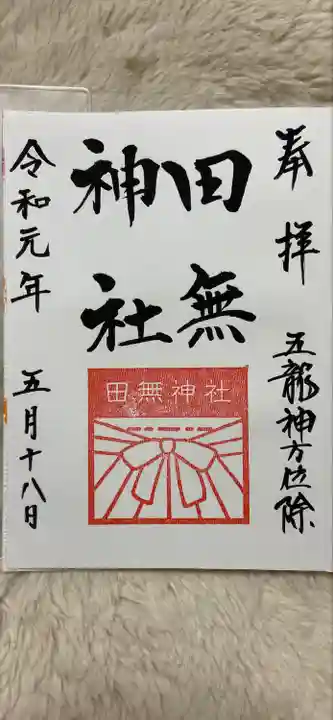 奉拝
五龍神方位除
田無
神社
田無神社
令和元年 五月十八日